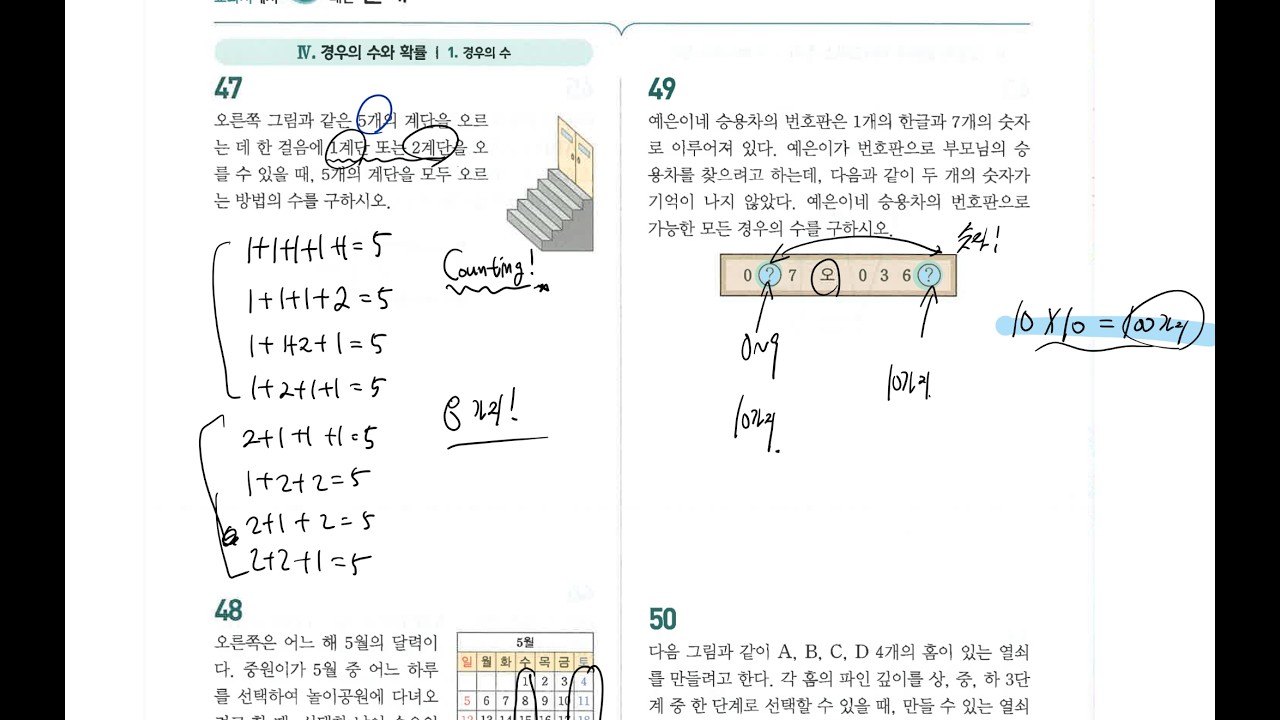 Ⅳ. 경우의 수와 확률 | 1. 경우의 수
47
오른쪽 그림과 같은 5개의 계단을 오르
는 데 한 걸음에 1계단 또는 2계단을 오
를 수 있을 때, 5개의 계단을 모두 오르
는 방법의 수를 구하시오.
1+1+1+1+1=5
1+1+1+2=5
1+1+2+1=5
1+2+1+1=5
2+1+1+1=5
1+2+2=5
2+1+2=5
2+2+1=5
Counting!
8가지!
48
오른쪽은 어느 해 5월의 달력이
다. 중원이가 5월 중 어느 하루
를 선택하여 놀이공원에 다녀오
5월
일 월 화 수 목 금 토
1 2 3 4
5 6 7 8 9 10 11
12 13 14 15 16 17 18
49
예은이네 승용차의 번호판은 1개의 한글과 7개의 숫자
로 이루어져 있다. 예은이가 번호판으로 부모님의 승
용차를 찾으려고 하는데, 다음과 같이 두 개의 숫자가
기억이 나지 않았다. 예은이네 승용차의 번호판으로
가능한 모든 경우의 수를 구하시오.
숫자!
0 ? 7 오 0 3 6 ?
0~9
10가지.
10가지.
10×10=100가지
50
다음 그림과 같이 A, B, C, D 4개의 홈이 있는 열쇠
를 만들려고 한다. 각 홈의 파인 깊이를 상, 중, 하 3단
계 중 한 단계로 선택할 수 있을 때, 만들 수 있는 열쇠